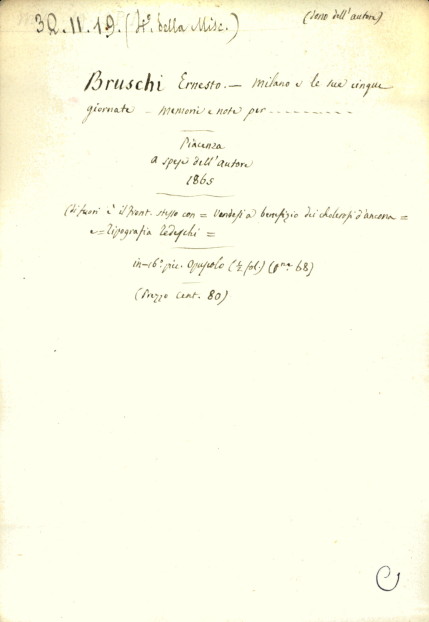 32.11.19. (4º. della Misc.)
(dono dell'autore)
Bruschi Ernesto. — Milano e le sue cinque
giornate — memorie e note per - - - - - - - - -
Piacenza
a spese dell'autore
1865
(di fuori è il front. stesso con = Vendesi a benefizio dei cholerosi d'Ancona =
e = Tipografia Tedeschi =
in-16º. picc. Opuscolo (½ fol.) (pne. 68)
(Prezzo Cent. 80)